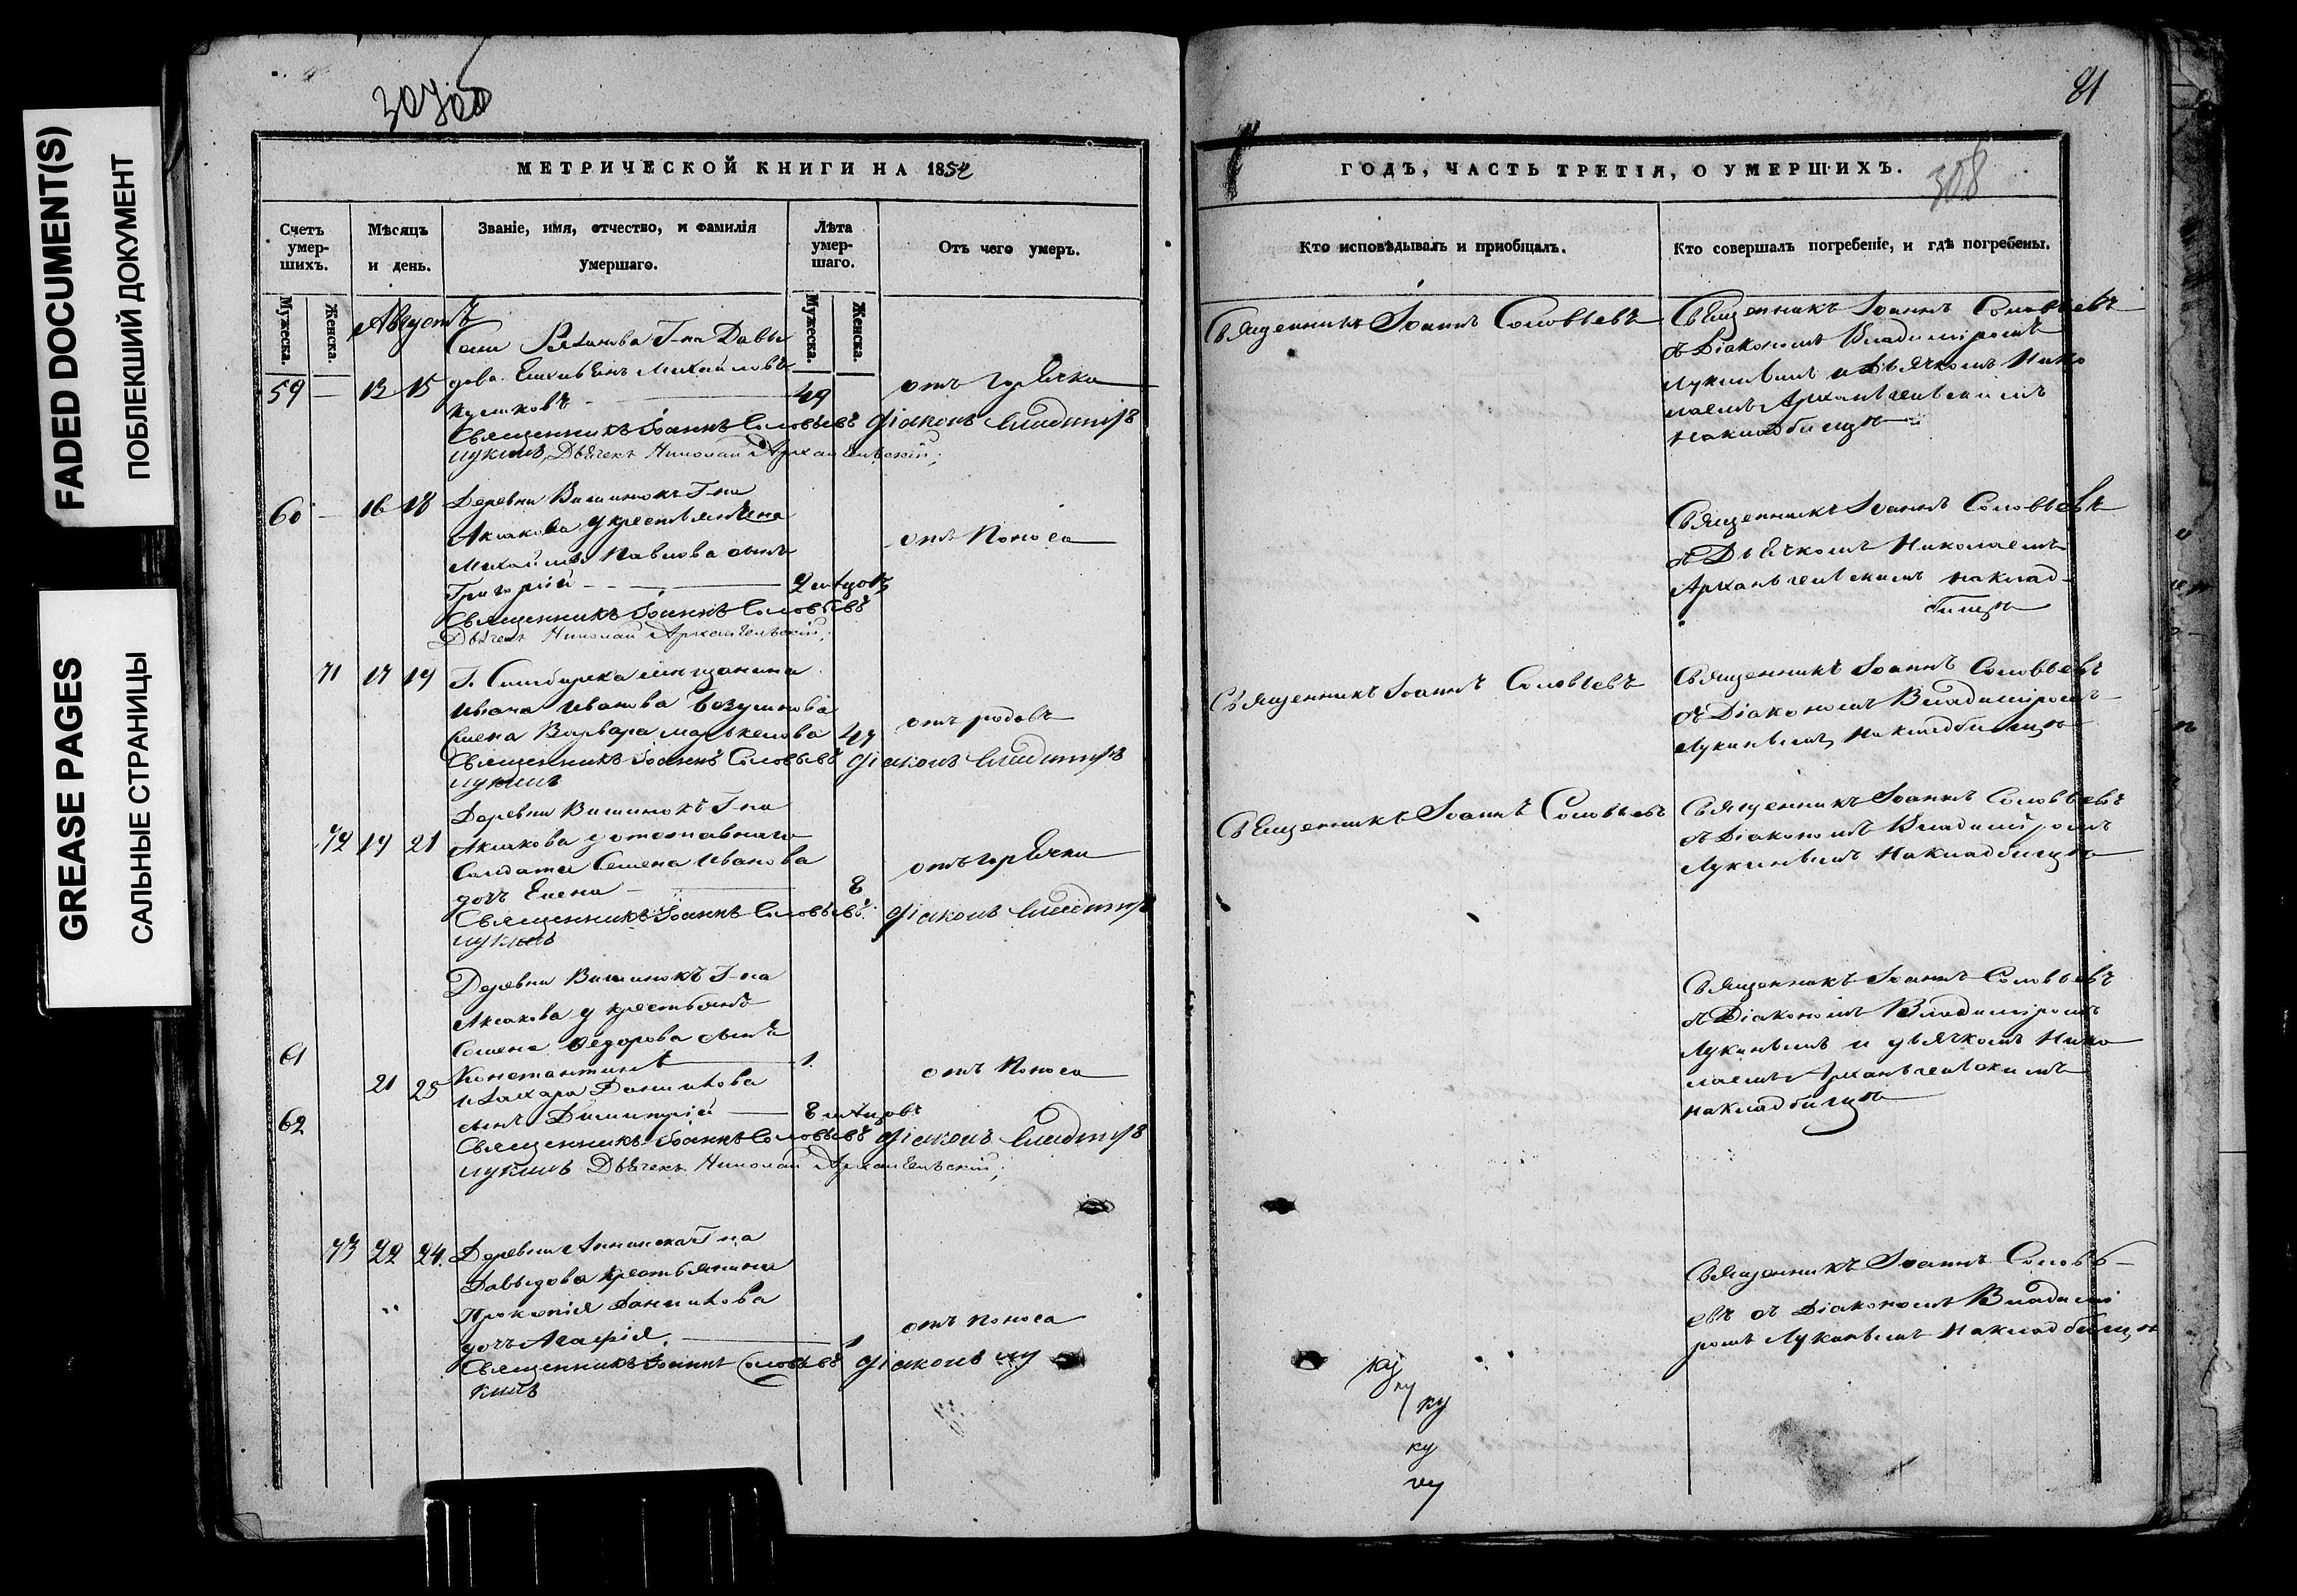 FADED DOCUMENT(S)
ПОБЛЕКШИЙ ДОКУМЕНТ
GREASE PAGES
САЛЬНЫЕ СТРАНИЦЫ
МЕТРИЧЕСКОЙ КНИГИ НА 1854
Счетъ умер-шихъ.
Мѣсяцъ и день.
Званіе, имя, отчество, и фамилія умершаго.
Лѣта умер-шаго.
Отъ чего умеръ.
Мужеска.
Женска.
Мужеска.
Женска.
Августъ
Г-на Давы
дова Михайловъ
59 — 13 15 49 отъ горячки
Священникъ Іоаннъ Соловьевъ Діаконъ Владиміръ
Лукинъ, Дьячекъ Николай Архангельскій;
60 — 16 18 Деревни Вишинокъ Г-на
Аксакова у крестьянина
Михайла Павлова сынъ
отъ поноса
Григорій
Священникъ Іоаннъ Соловьевъ
Дьячекъ Николай Архангельскій;
71 17 19 Г. Симбирска мѣщанина
Ивана Иванова
жена Варвара Маркелова 47 отъ родовъ
Священникъ Іоаннъ Соловьевъ Діаконъ Владиміръ
Лукинъ
Деревни Вишинокъ Г-на
72 19 21 Аксакова у отставнаго
Солдата Семена Иванова
отъ горячки
дочь Елена — 8
Священникъ Іоаннъ Соловьевъ Діаконъ Владиміръ
Лукинъ
Деревни Вишинокъ Г-на
Аксакова у крестьянъ
Семена Ѳедорова сынъ
61 Константинъ 1
21 23 и Захара Данилова отъ поноса
62 сынъ Димитрій — 8 мѣсяцовъ
Священникъ Іоаннъ Соловьевъ Діаконъ Владиміръ
Лукинъ Дьячекъ Николай Архангельскій;
73 22 24. Деревни Г-на
Давыдова крестьянина
Прокопія Данилова
отъ поноса
дочь Агафія 1
Священникъ Іоаннъ Соловьевъ Діаконъ Лу
кинъ
81
ГОДЪ, ЧАСТЬ ТРЕТІЯ, О УМЕРШИХЪ.
308
Кто исповѣдывалъ и приобщалъ.
Кто совершалъ погребеніе, и гдѣ погребены.
Священникъ Іоаннъ Соловьевъ
Священникъ Іоаннъ Соловьевъ
съ Діакономъ Владиміромъ
Лукинымъ и Дьячкомъ Нико
лаемъ Архангельскимъ
на кладбищѣ
Священникъ Іоаннъ Соловьевъ
съ Дьячкомъ Николаемъ
Архангельскимъ на клад-
бищѣ
Священникъ Іоаннъ Соловьевъ
Священникъ Іоаннъ Соловьевъ
съ Діакономъ Владиміромъ
Лукинымъ на кладбищѣ
Священникъ Іоаннъ Соловьевъ
Священникъ Іоаннъ Соловьевъ
съ Діакономъ Владиміромъ
Лукинымъ на кладбищѣ
Священникъ Іоаннъ Соловьевъ
съ Діакономъ Владиміромъ
Лукинымъ и дьячкомъ Нико
лаемъ Архангельскимъ
на кладбищѣ
Священникъ Іоаннъ Соловь-
евъ съ Діакономъ Владимі
ромъ Лукинымъ на кладбищѣ
ку
ку